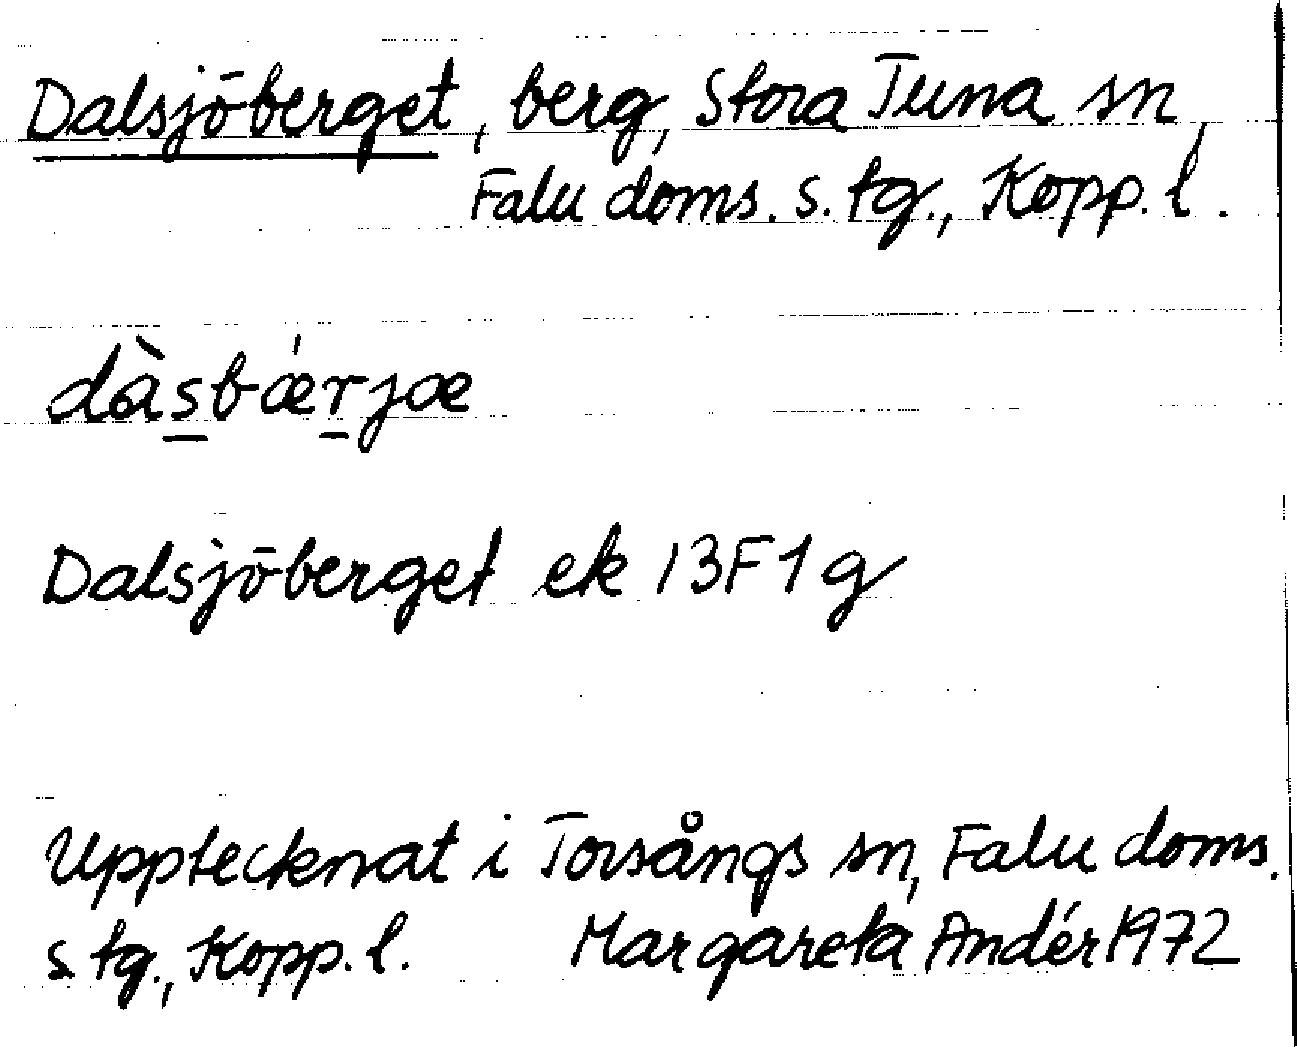 Dalsjöberget, berg, Stora Tuna sn,
Falu doms. s. tg., Kopp. l.
dàs̲bǽr̲jæ
Dalsjöberget ek 13F1g
Upptecknat i Torsångs sn, Falu doms.
s. tg., Kopp. l. Margareta Andér 1972